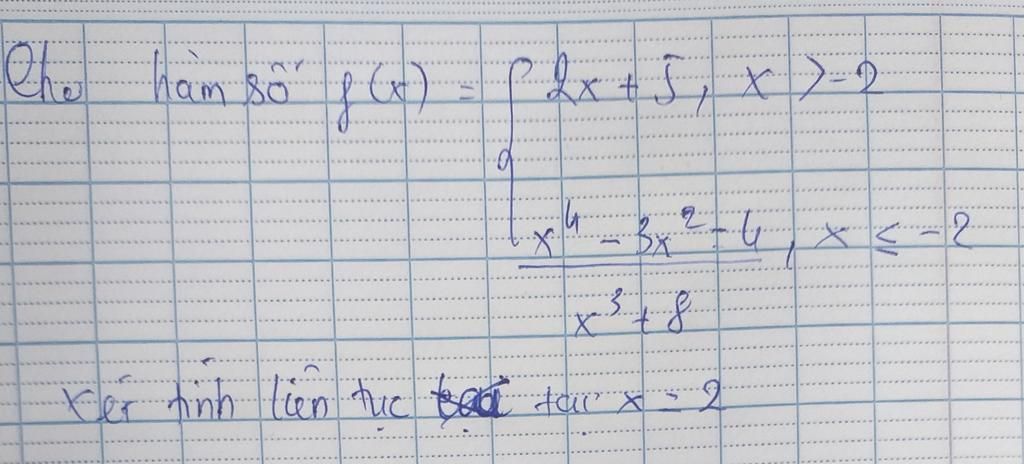 Cho hàm số f(x) = { 2x + 5, x > -2
x⁴ - 3x² - 4, x ≤ -2
x³ + 8
Xét tính liên tục tại x = 2